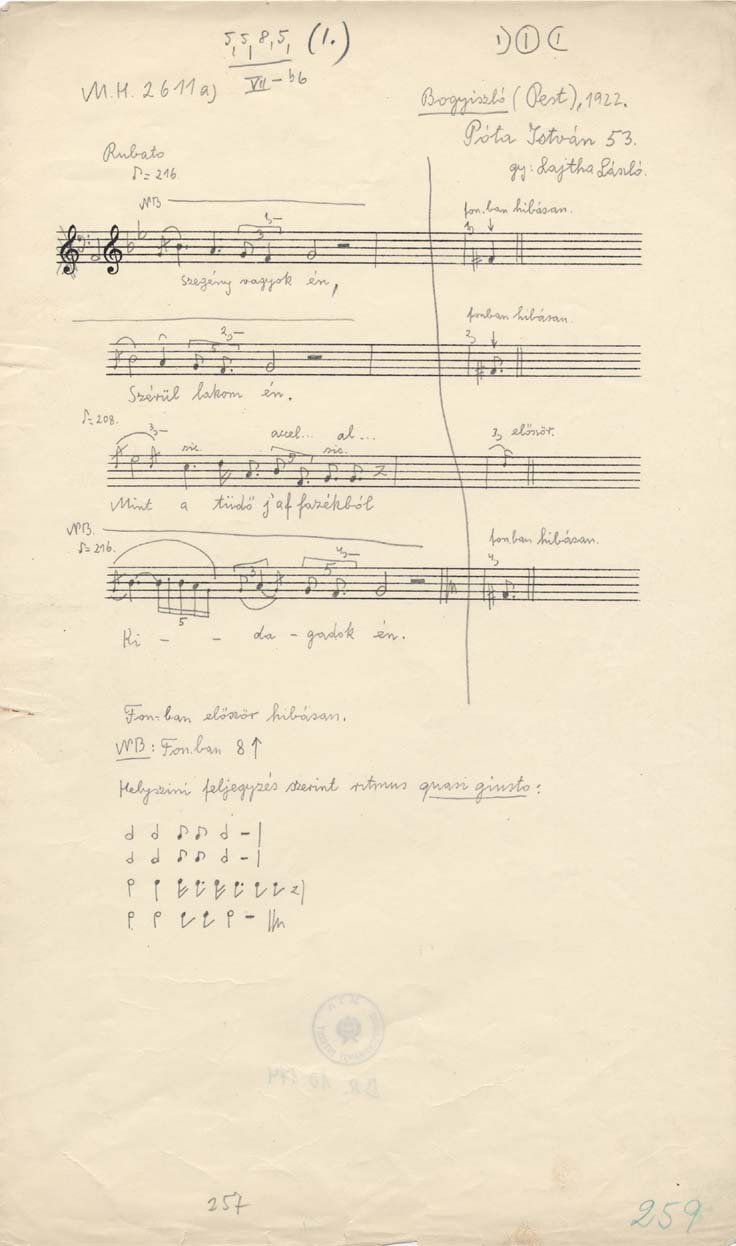 5, 5, 8, 5, (1.)
1) (1) (1
VII – b6
M.H. 2611a)
Bogyiszló (Pest), 1922.
Póta István 53.
gy: Lajtha László.
Rubato
♪= 216.
NB
1) –
3
fon.ban hibásan.
1)
Szegény vagyok én,
2) –
5
fonban hibásan.
2)
Szérül lakom én.
♪= 208.
3) –
sic.
accel... al...
5
sic.
3) először.
Mint a tüdő j'af fazékból
NB.
♪= 216.
5
3
5
4) –
fonban hibásan.
4)
Ki – – da – gadok én.
Fon.ban először hibásan.
NB: Fon.ban 8↑
Helyszini feljegyzés szerint ritmus quasi giusto:
257
259